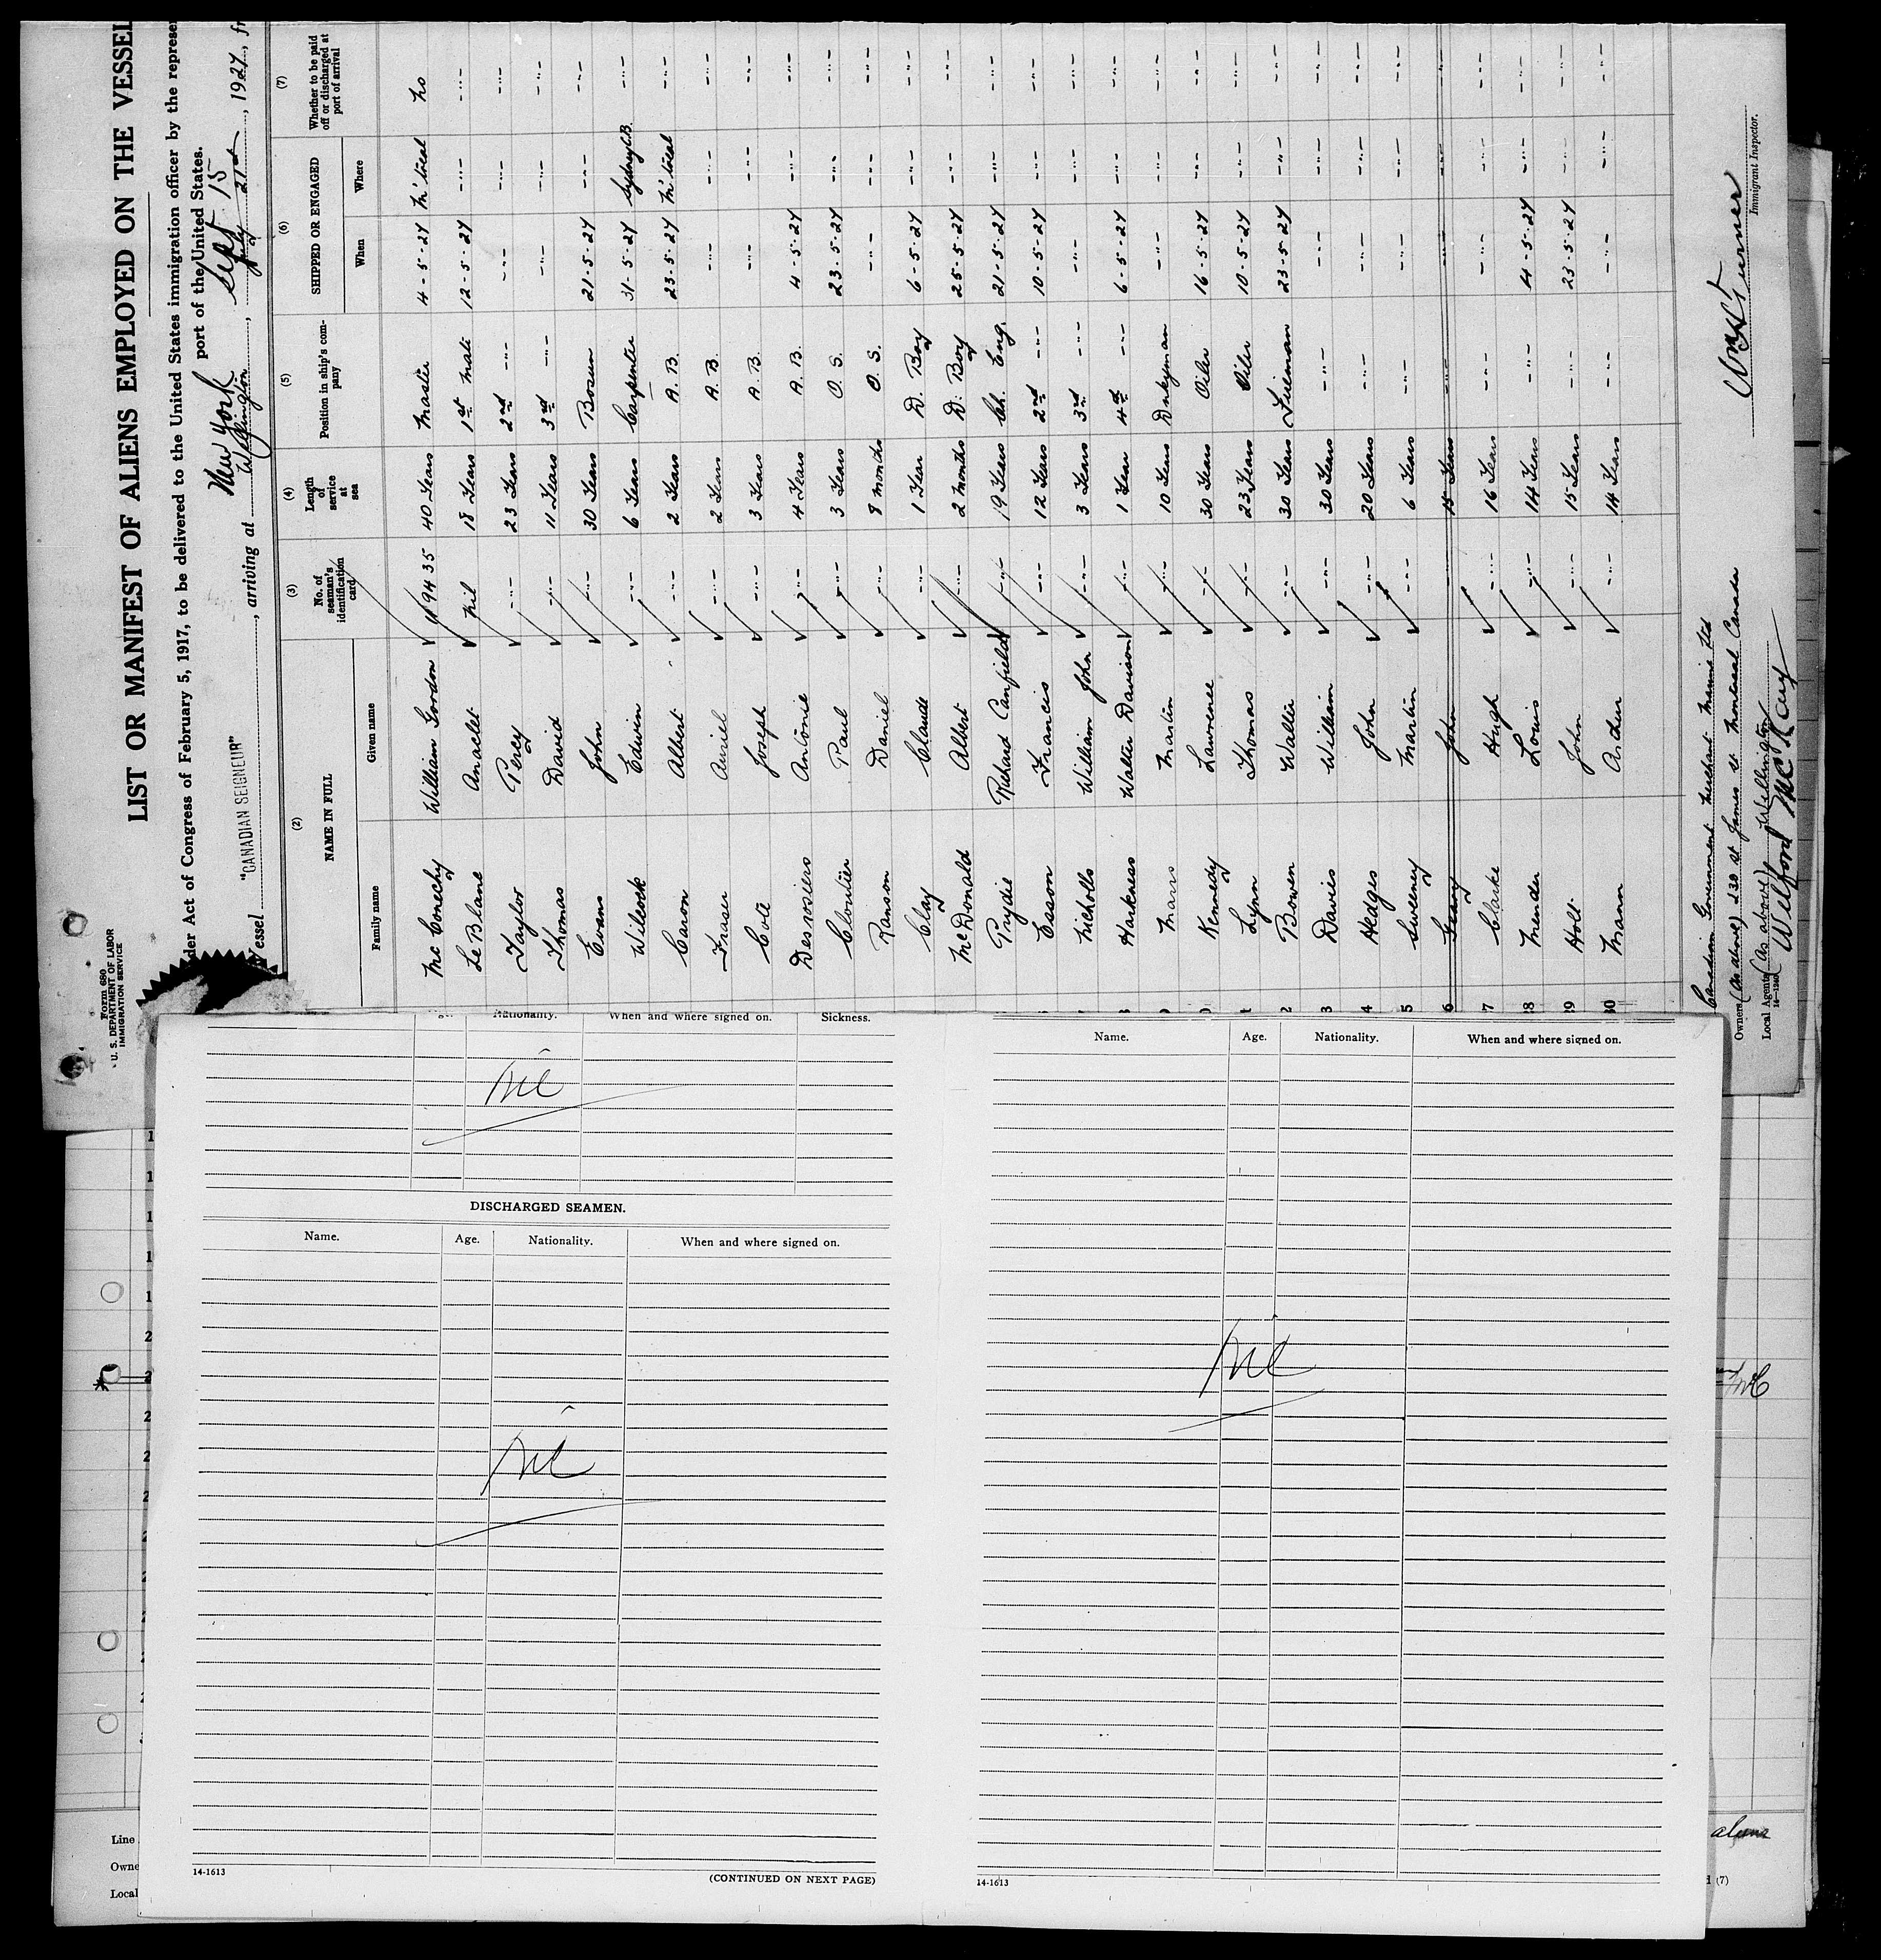 Form 680
U. S. DEPARTMENT OF LABOR
IMMIGRATION SERVICE
LIST OR MANIFEST OF ALIENS EMPLOYED ON THE VESSEL
der Act of Congress of February 5, 1917, to be delivered to the United States immigration officer by the represe
port of the United States.
New York Sept 15
Vessel "CANADIAN SEIGNEUR", arriving at Wellington, July 21st, 1927, fr
(2) (3) (4) (5) (6) (7)
NAME IN FULL No. of seaman's identification card Length of service at sea Position in ship's company SHIPPED OR ENGAGED Whether to be paid off or discharged at port of arrival
Family name Given name When Where
McConechy William Gordon 119435 40 Years Master 4-5-27 M'treal No
LeBlanc Anaclet Nil 18 Years 1st Mate 12-5-27 -"- -"-
Taylor Percy -"- 23 Years 2nd -"- -"- -"- -"-
Thomas David -"- 11 Years 3rd -"- -"- -"- -"-
Evans John -"- 30 Years Bosun 21-5-27 -"- -"-
Wilcock Edwin -"- 6 Years Carpenter 31-5-27 Sydney C.B. -"-
Caron Albert -"- 2 Years A. B. 23-5-27 M'treal -"-
Fraser Auriel -"- 2 Years A. B. -"- -"- -"-
Cote Joseph -"- 3 Years A. B. -"- -"- -"-
Desrosiers Antonie -"- 4 Years A. B. 4-5-27 -"- -"-
Cloutier Paul -"- 3 Years O. S. 23-5-27 -"- -"-
Ranson Daniel -"- 8 Months O. S. -"- -"- -"-
Clay Claude -"- 1 Year D. Boy 6-5-27 -"- -"-
McDonald Albert -"- 2 Months D. Boy 25-5-27 -"- -"-
Prydie Richard Canfield -"- 19 Years Ch. Eng. 21-5-27 -"- -"-
Esson Francis -"- 12 Years 2nd -"- 10-5-27 -"- -"-
Nicholls William John -"- 3 Years 3rd -"- -"- -"- -"-
8 Harkness Walter Davison -"- 1 Year 4th -"- 6-5-27 -"- -"-
9 Mars Martin -"- 10 Years Dnkyman -"- -"- -"-
0 Kennedy Lawrence -"- 30 Years Oiler 16-5-27 -"- -"-
1 Lynn Thomas -"- 23 Years Oiler 10-5-27 -"- -"-
2 Bowen Walter -"- 30 Years Fireman 23-5-27 -"- -"-
3 Davies William -"- 30 Years -"- -"- -"- -"-
4 Hedges John -"- 20 Years -"- -"- -"- -"-
5 Sweeney Martin -"- 6 Years -"- -"- -"- -"-
6 Geary John -"- 15 Years -"- -"- -"- -"-
7 Clarke Hugh -"- 16 Years -"- -"- -"- -"-
28 Mender Louis -"- 14 Years -"- 4-5-27 -"- -"-
29 Holt John -"- 15 Years -"- 23-5-27 -"- -"-
30 Mann Arthur -"- 14 Years -"- -"- -"- -"-
Canadian Government Merchant Marine Ltd
Owners (As above) 230 St James St Montreal Canada
Local Agents (As above) Wellington
14-1240
Wilford McKay
Immigrant Inspector.
Age. Nationality. When and where signed on. Sickness.
Nil
DISCHARGED SEAMEN.
Name. Age. Nationality. When and where signed on.
Nil
14-1613
(CONTINUED ON NEXT PAGE)
Name. Age. Nationality. When and where signed on.
Nil
14-1613
Line
Owne
Local
(7)